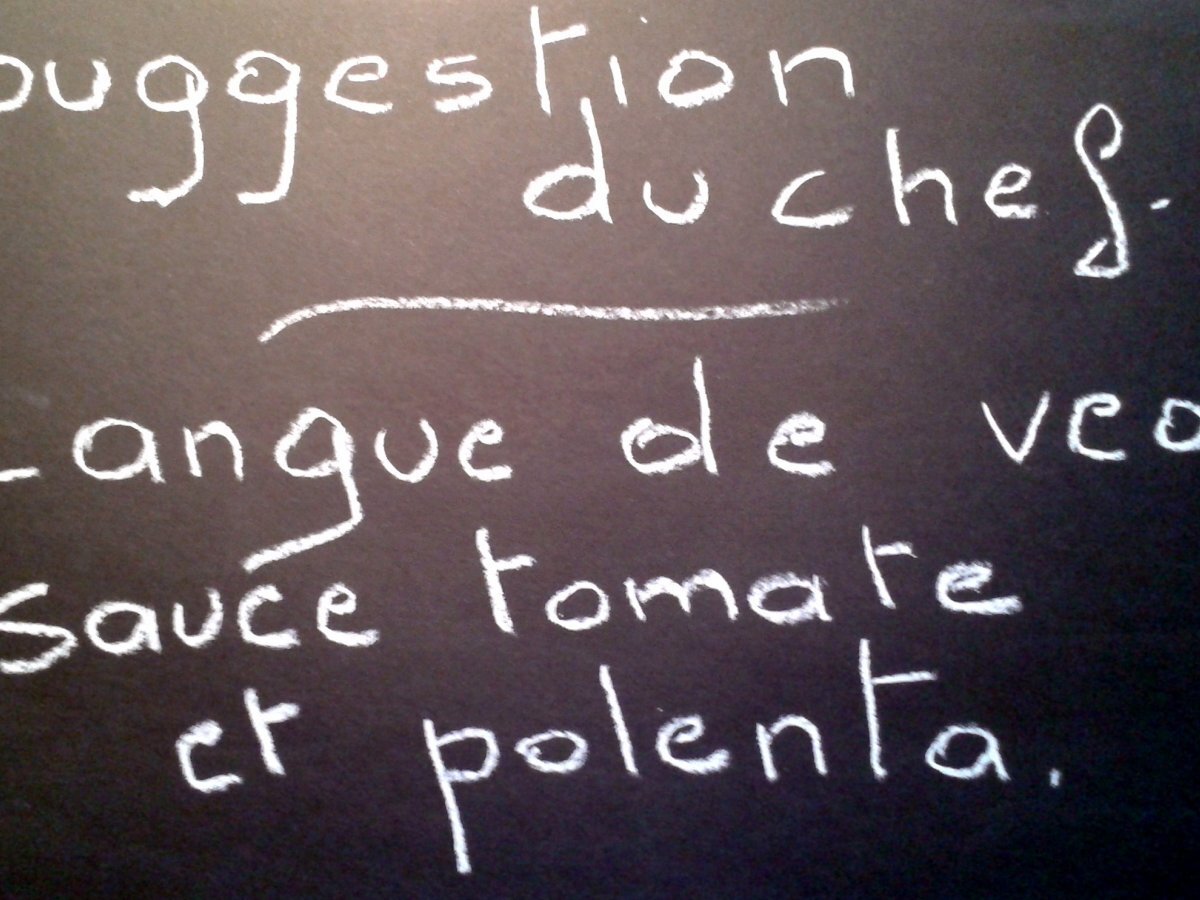 Suggestion
du chef.
Langue de vea
sauce tomate
et polenta.